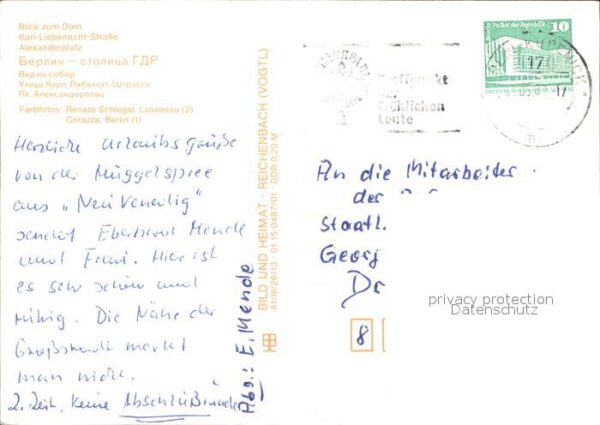 Blick zum Dom
Karl-Liebknecht-Straße
Alexanderplatz
Берлин – столица ГДР
Вид на собор
Улица Карл-Либкнехт-Штрассе
Пл. Александерплац
Farbfotos: Renate Schlegel, Lunzenau (2)
Corazza, Berlin (1)
Herzliche Urlaubsgrüße
von der Müggelspree
aus „Neu Venedig"
sendet Eberhard Mende
und Frau. Hier ist
es sehr schön und
ruhig. Die Nähe der
Großstadt merkt
man nicht.
z. Zeit. Keine Abschlußrunde
Abs.: E. Mende
BILD UND HEIMAT · REICHENBACH (VOGTL)
A1/III/26/13 · 01 15 0487/01 · DDR 0,20 M
Palast der Republik
10
Treffpunkt
der
fröhlichen
Leute
An die Mitarbeiter
der
Staatl.
Georg
Dr
8
privacy protection
Datenschutz